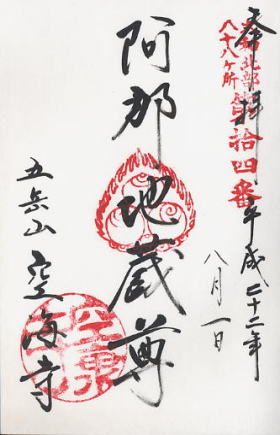 奉拝
八十八ヶ所
第拾四番
平成二十二年
八月一日
阿那地蔵尊
五岳山
空海寺